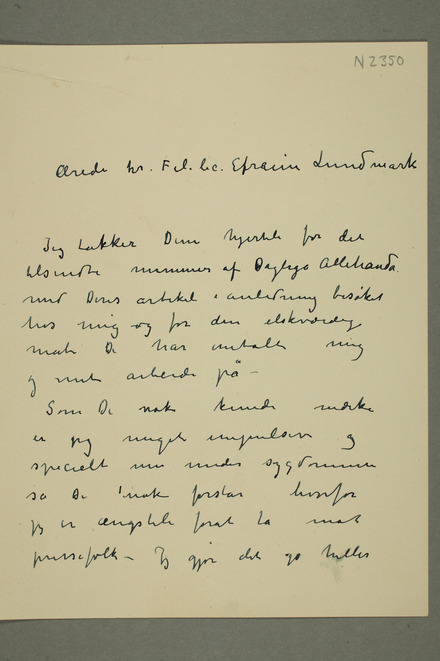 N 2350
Ærede hr. Fil. lic. Efraim Lundmark
Jeg takker Dem hjerteli for det
tilsendte nummer af Dagligt Allehanda
med Deres artikel i anledning besøket
hos mig og for den elskværdig
måte De har omtalt mig
og mit arbeide på –
Som De nok kunde mærke
er jeg meget impulsiv og
specielt nu under sygdommen
så De nok forstår hvorfor
jeg er ængsteli forat ta mot
pressefolk – Jeg gjør det jo heller